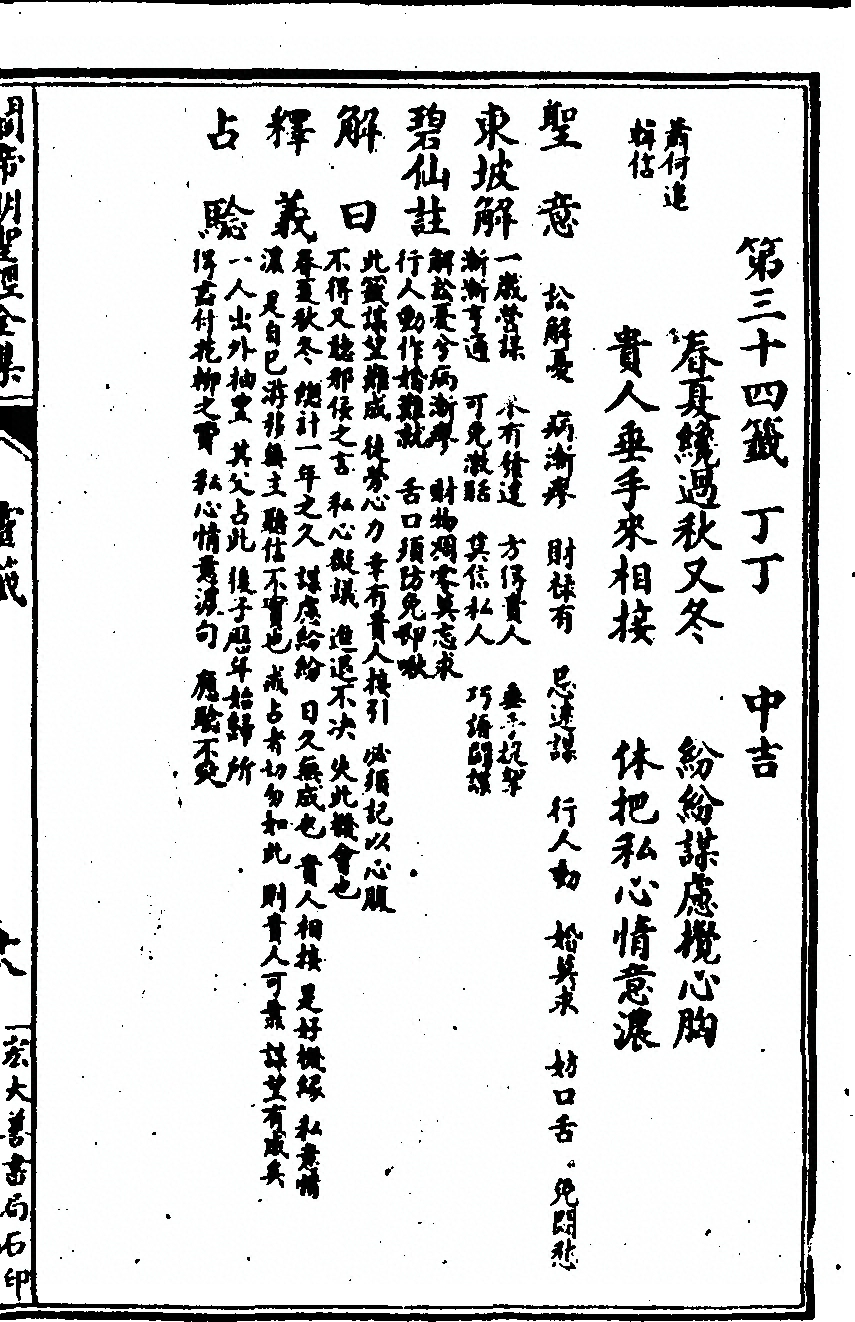 第三十四籤 丁丁 中吉
蕭何追
韓信
春夏纔過秋又冬 紛紛謀慮攪心胸
貴人垂手來相接 休把私心情意濃
聖意 訟解憂 病漸瘳 財祿有 忌速謀 行人動 婚莫求 妨口舌 免悶愁
東坡解 一歲營謀 未有發達 方得貴人 垂手提挈
漸漸亨通 可免激聒 莫信私人 巧語閗諜
碧仙註 解訟憂兮病漸瘳 財物凋零莫忘求
行人動作婚難就 舌口須防免啣啾
解曰 此籤謀望難成 徒勞心力 幸有貴人接引 必須記以心腹
不得又聽邪佞之言 私心擬議 進退不決 失此機會也
釋義 春夏秋冬 總計一年之久 謀慮紛紛 日久無成也 貴人相接 是好機緣 私意情
濃 是自已游移無主 聽信不實也 戒占者切勿如此 則貴人可靠 謀望有成矣
占驗 一人出外抽豐 其父占此 後子歴年始歸 所
得盡付花柳之費 私心情意濃句 應驗不爽
關帝明聖經全集
靈籤
宏大善書局石印